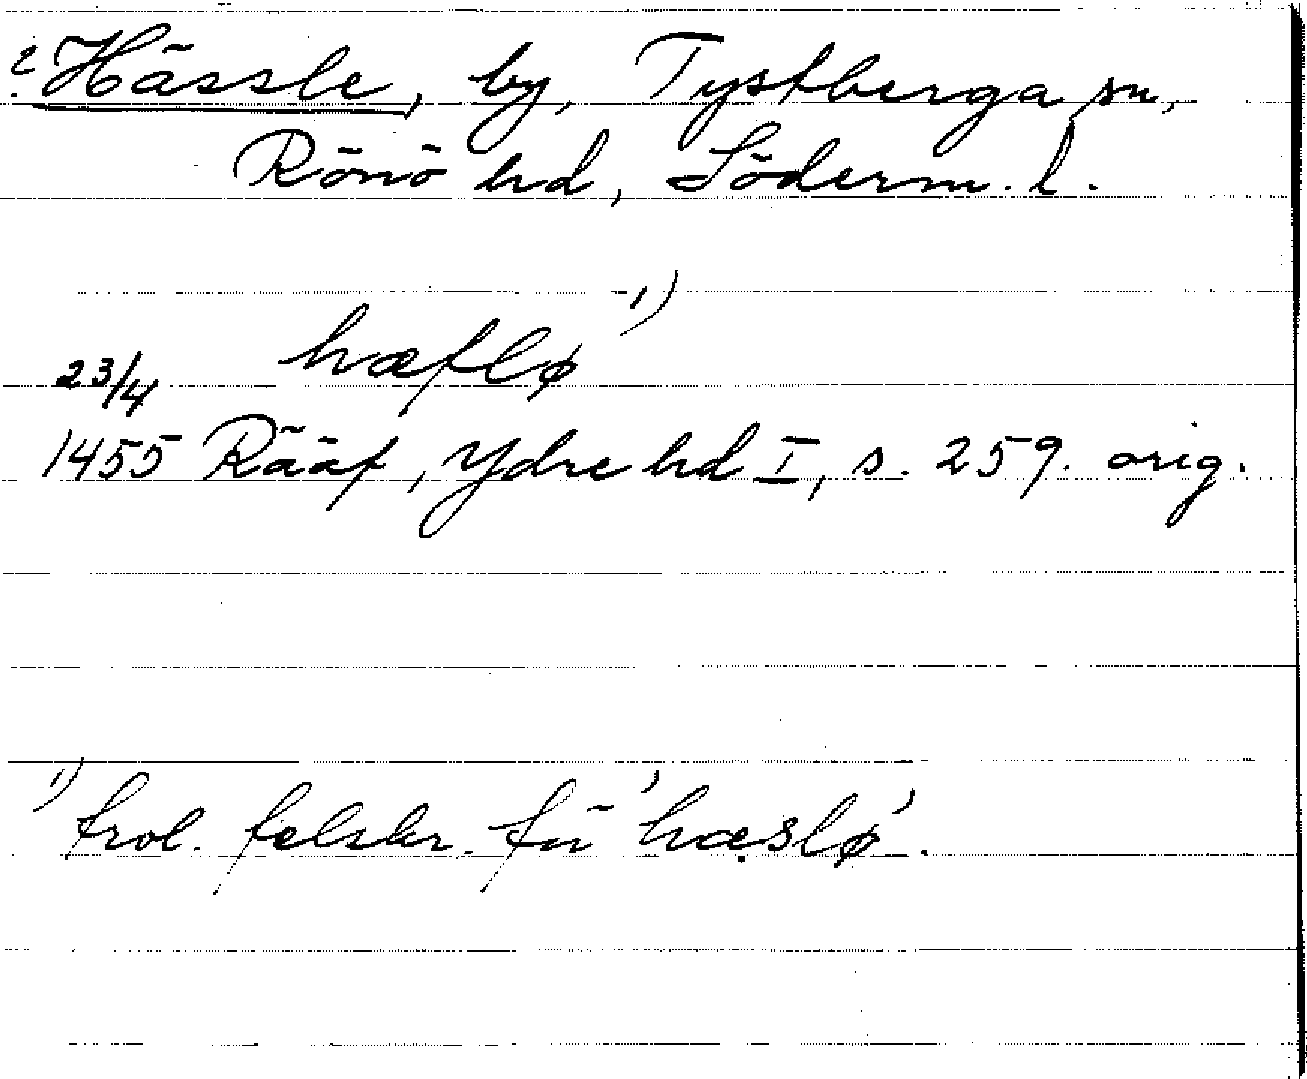 ? Hässle, by, Tystberga sn,
Rönö hd, Söderm. l.
hæflø 1)
23/4
1455 Rääf, Ydre hd I, s. 259. orig.
1) trol. felskr. för 'hæslø'.